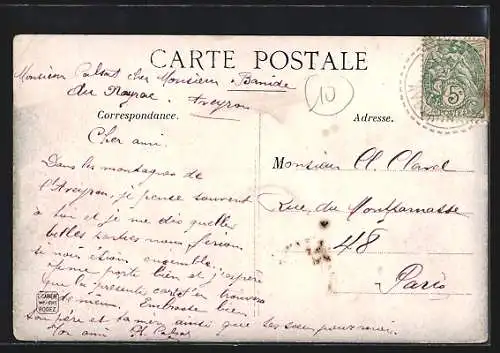 CARTE POSTALE
Monsieur Calsat chez Monsieur Banide
du Nayrac. Aveyron
10
Correspondance.
Adresse.
5c
Cher ami.
Dans les montagnes de
l'Aveyron, je pense souvent
à toi et je me dis quelles
belles parties nous ferions
si nous étions ensemble.
je me porte bien et j'espère
que la présente carte t'en trouvera
de même. Embrasse bien
ton père et ta mère ainsi que
Ton ami
Monsieur A. Clavel
Rue du Montparnasse
48
Paris
RODEZ